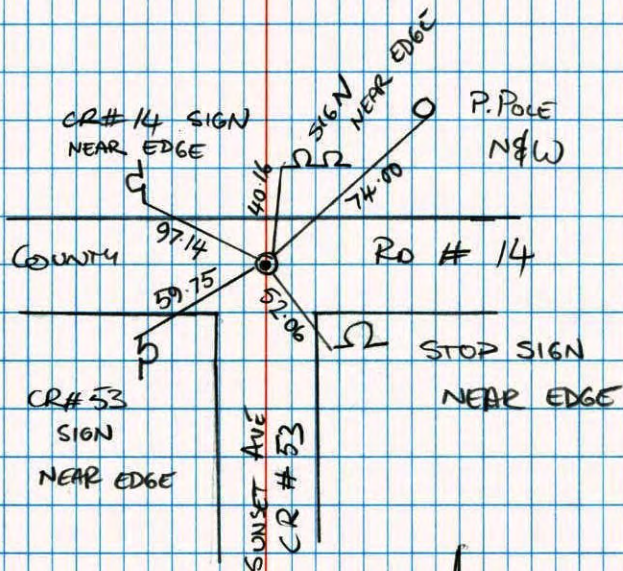 CR# 14 SIGN
NEAR EDGE
SIGN
NEAR EDGE
P. POLE
N&W
40.16
74.00
97.14
COUNTY RD # 14
59.75
52.06
STOP SIGN
NEAR EDGE
CR# 53
SIGN
NEAR EDGE
SUNSET AVE
CR # 53